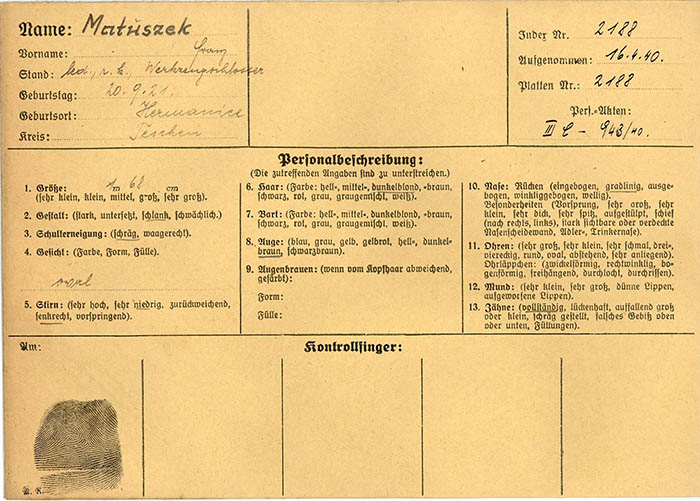 Name: Matuszek
Vorname: Franz
Stand: led., r. k., Werkzeugschlosser
Geburtstag: 20. 9. 21.
Geburtsort: Hermanice
Kreis: Teschen
Index Nr. 2188
Aufgenommen: 16.4.40.
Platten Nr.: 2188
Pers.-Akten:
III C - 943/40.
Personalbeschreibung:
(Die zutreffenden Angaben sind zu unterstreichen.)
1. Größe: 1 m 68 cm
(sehr klein, klein, mittel, groß, sehr groß).
2. Gestalt: (stark, untersetzt, schlank, schwächlich.)
3. Schulterneigung: (schräg, waagerecht.)
4. Gesicht: (Farbe, Form, Fülle).
oval
5. Stirn: (sehr hoch, sehr niedrig, zurückweichend,
senkrecht, vorspringend).
6. Haar: (Farbe: hell-, mittel-, dunkelblond, -braun,
schwarz, rot, grau, graugemischt, weiß).
7. Bart: (Farbe: hell-, mittel-, dunkelblond, -braun,
schwarz, rot, grau, graugemischt, weiß).
8. Auge: (blau, grau, gelb, gelbrot, hell-, dunkel-
braun, schwarzbraun).
9. Augenbrauen: (wenn vom Kopfhaar abweichend,
gefärbt):
Form:
Fülle:
10. Nase: Rücken (eingebogen, gradlinig, ausge-
bogen, winkliggebogen, wellig).
Besonderheiten (Vorsprung, sehr groß, sehr
klein, sehr dick, sehr spitz, aufgestülpt, schief
(nach rechts, links), stark sichtbare oder verdeckte
Nasenscheidewand, Adler-, Trinkernase).
11. Ohren: (sehr groß, sehr klein, sehr schmal, drei-,
viereckig, rund, oval, abstehend, sehr anliegend).
Ohrläppchen: (zwickelförmig, rechtwinklig, bo-
genförmig, freihängend, durchlocht, durchrissen).
12. Mund: (sehr klein, sehr groß, dünne Lippen,
aufgeworfene Lippen).
13. Zähne: (vollständig, lückenhaft, auffallend groß
oder klein, schräg gestellt, falsches Gebiß oben
oder unten, Füllungen).
Am:
Kontrollfinger: